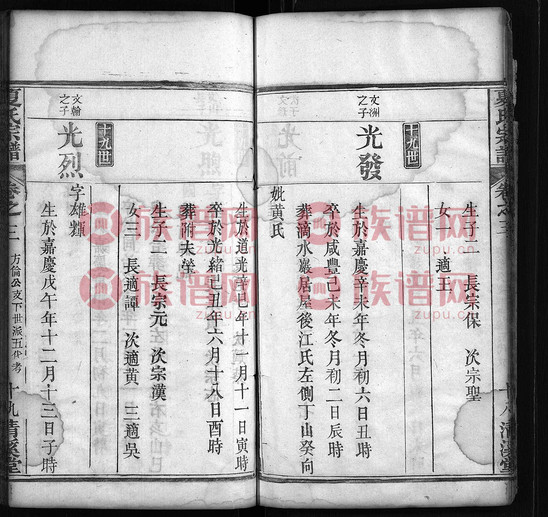 生子二 長宗保 次宗聖
女一 適王
十九世
文洲之子
光發
生於嘉慶辛未年冬月初六日丑時
卒於咸豐己未年冬月初二日辰時
葬滴水巖居屋後江氏左側丁山癸向
妣黃氏
十八 清溪堂
生於道光辛巳年十一月十一日寅時
卒於光緒己丑年六月十八日酉時
葬附夫塋
生子二 長宗元 次宗漢
女三 長適譚 次適黃 三適吳
十九世
文翰之子
光烈
字雄類
生於嘉慶戊午年十二月十三日子時
夏氏宗譜
卷之三
方倫公支下世派五代考
十九 清溪堂
族谱网
zupu.cn
族谱网
zupu.cn
族谱网
zupu.cn
族谱网
zupu.cn